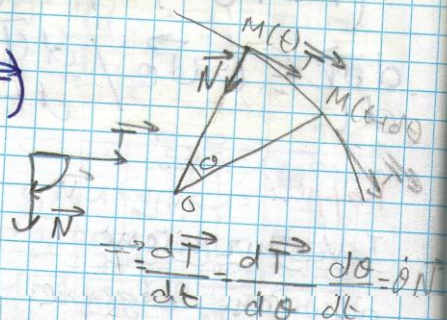 M(t) T
N
M(t+dθ
θ
O
T
N
=> dT/dt = dT/dθ dθ/dt = θ̇N